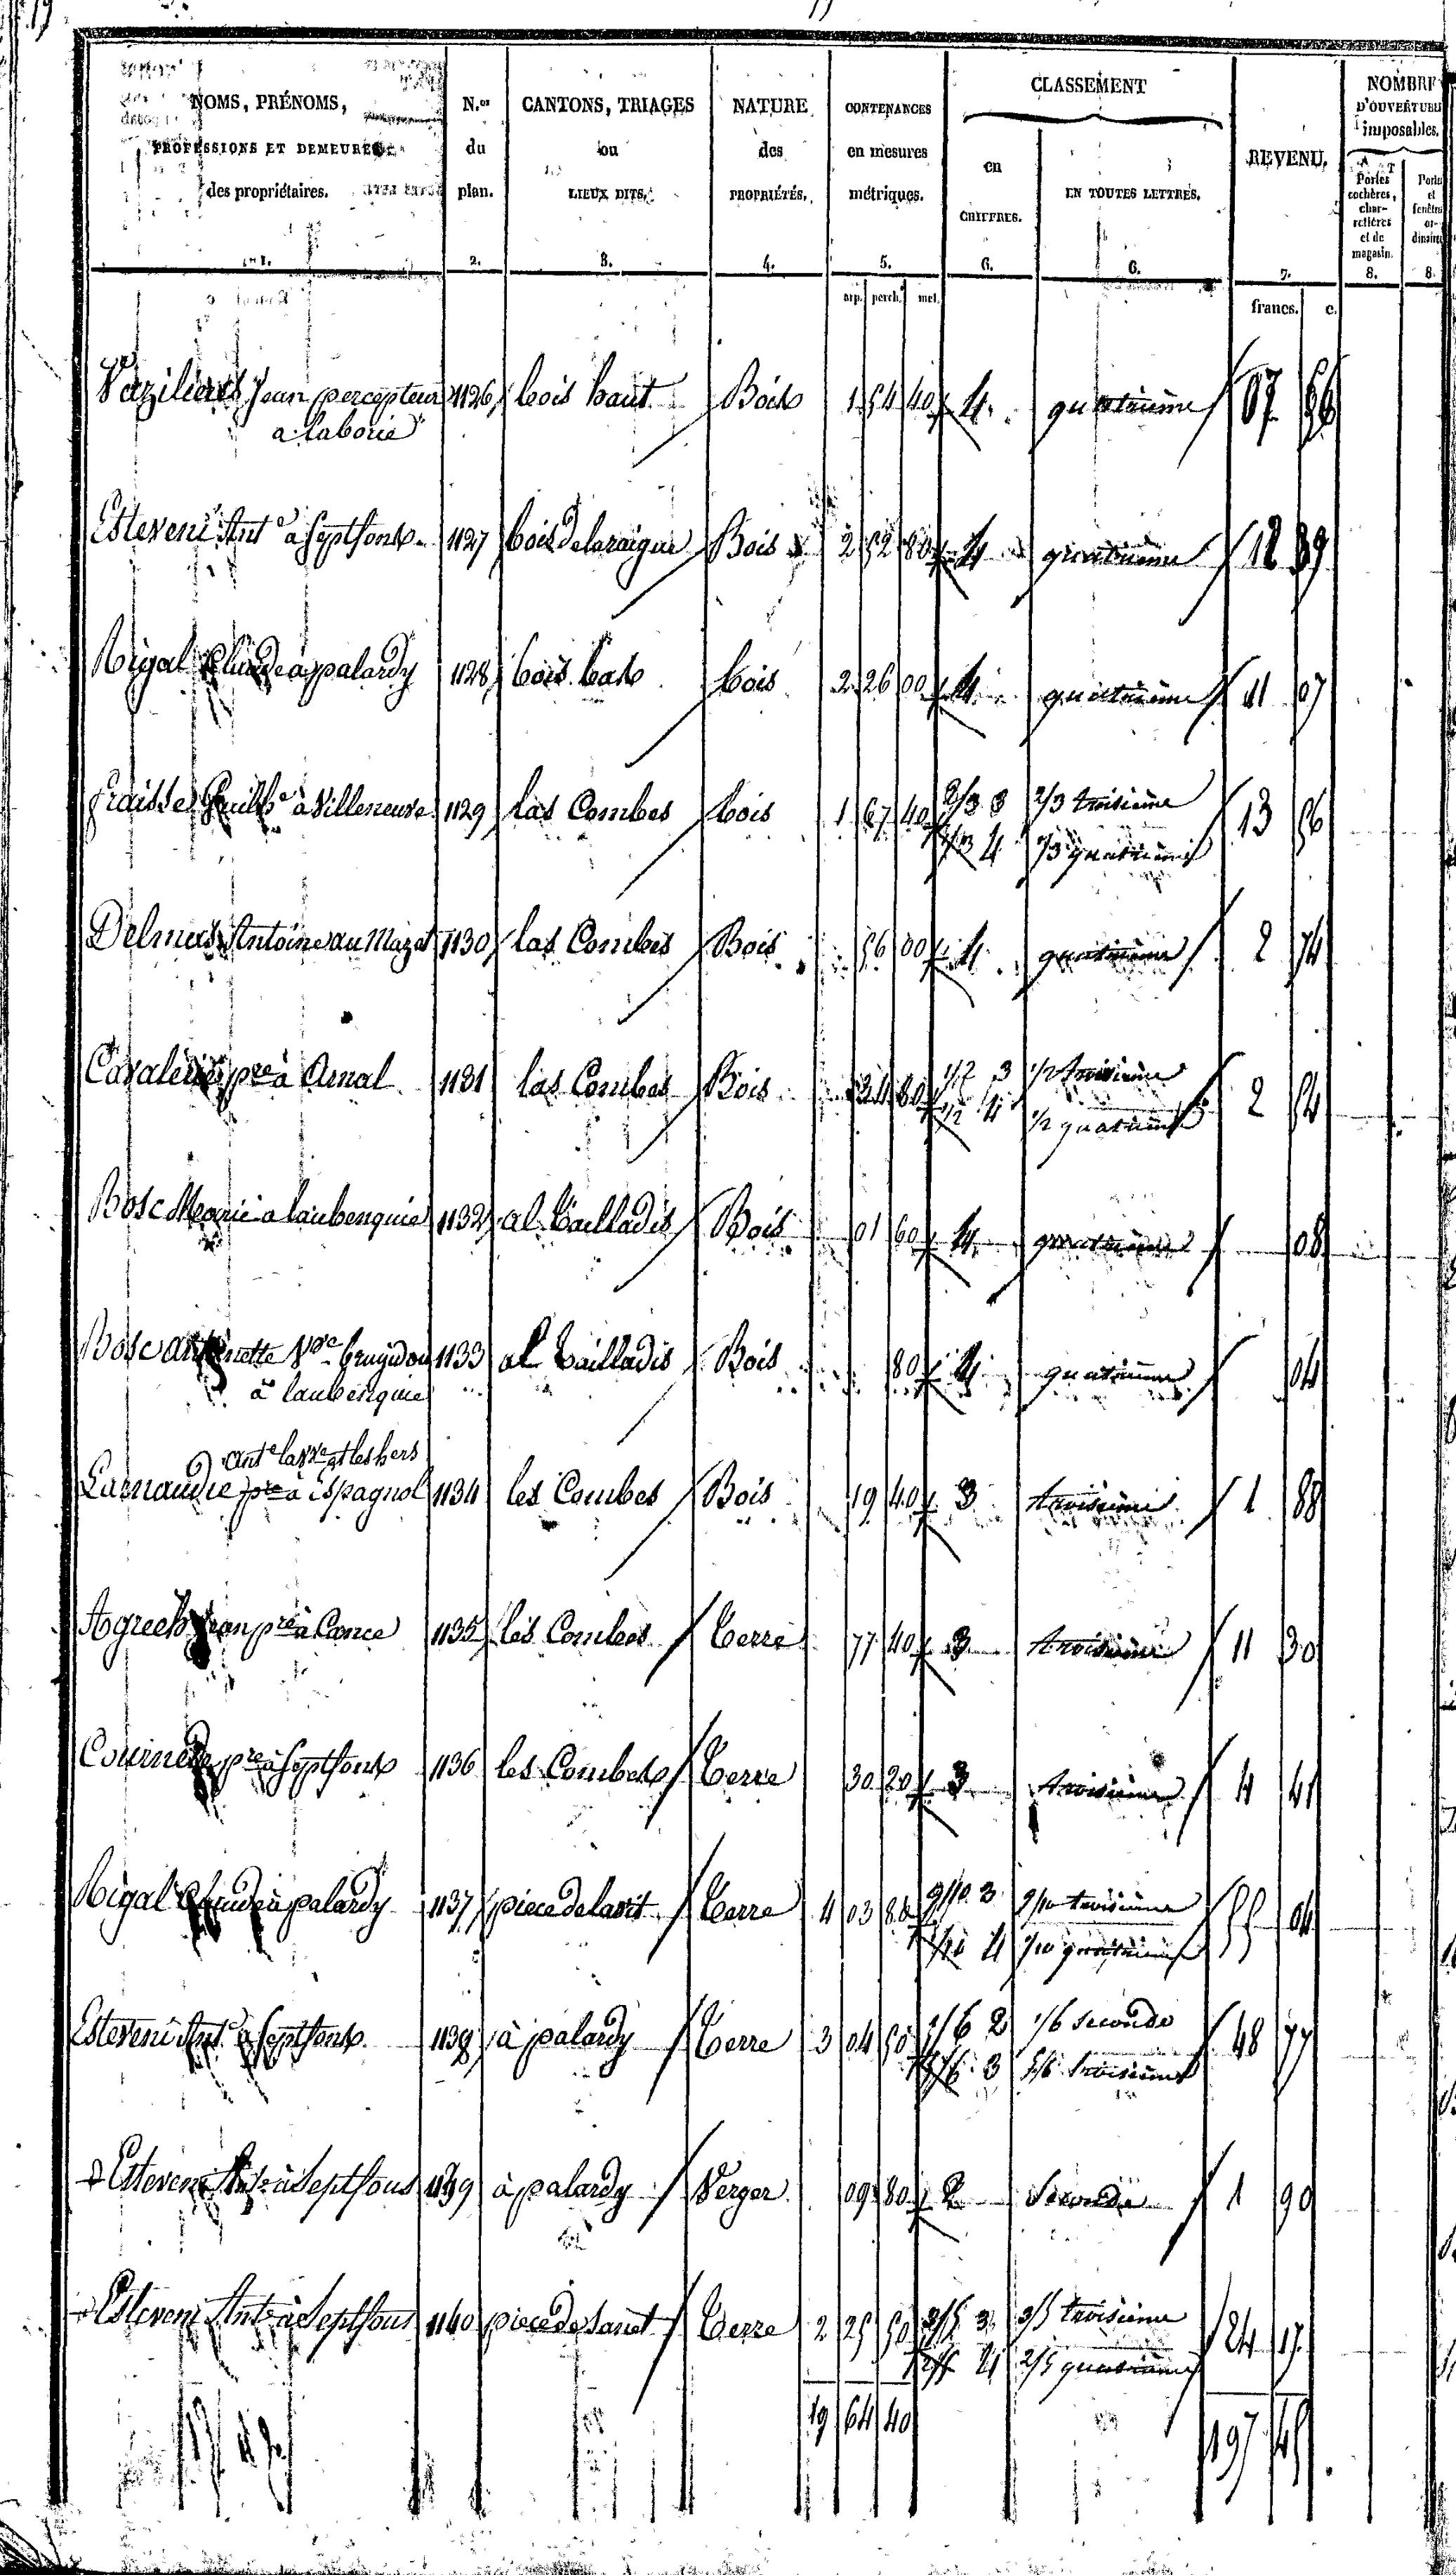 NOMS, PRÉNOMS, PROFESSIONS ET DEMEURES des propriétaires. 1.
N.os du plan. 2.
CANTONS, TRIAGES ou LIEUX DITS. 3.
NATURE des PROPRIÉTÉS. 4.
CONTENANCES en mesures métriques. 5.
CLASSEMENT
en CHIFFRES. 6.
EN TOUTES LETTRES. 6.
REVENU. 7.
NOMBRE D'OUVERTURES imposables.
Portes cochères, charretières et de magasin. 8.
8.
arp. perch. met. francs. c.
Jean percepteur 1126 bois haut Bois 1 54 40 4 quatrieme 56
a laborie
Esteveni Ant.e à Septfonts 1127 bois Bois 2 52 80 4 quatrieme 12 39
Rigal Claude à palardy 1128 bois bas bois 2 26 00 4 quatrieme 11 07
fraisse Guilh.e à Villeneuve 1129 las Combes bois 1 67 40 2/3 3 2/3 troisieme 13 56
1/3 4 1/3 quatrieme
Delmas Antoine au Mazet 1130 las Combes Bois 56 00 4 quatrieme 2 74
pre à Amal 1131 las Combes Bois 34 80 1/2 3 1/2 troisieme 2 54
1/2 4 1/2 quatrieme
Bosc Marie a laubenquie 1132 al Tailladis Bois 01 60 4 quatrieme 08
Bosc antoinette V.ve 1133 al Tailladis Bois 80 4 quatrieme 04
à laubenquie
ant.e la v.ve et les hers
Larnaudie pre à Espagnol 1134 les Combes Bois 19 40 3 troisieme 1 88
Agrech Jean pre à Cance 1135 les Combes Terre 77 40 3 troisieme 11 30
Cournede pre à Septfonts 1136 les Combes Terre 30 20 3 troisieme 4 41
Rigal Claude à palardy 1137 piece Terre 4 03 80 9/10 3 9/10 troisieme 55 04
1/10 4 1/10 quatrieme
Esteveni Ant.e à Septfonts 1138 à palardy Terre 3 04 50 1/6 2 1/6 seconde 48 77
5/6 3 5/6 troisieme
Esteveni Ant.e à Septfons 1139 à palardy Verger 09 80 2 Seconde 1 90
Esteveni Ant.e à Septfons 1140 piece de Terre 2 25 50 3/5 3 3/5 troisieme 24 17
2/5 4 2/5 quatrieme
19 64 40 197 45